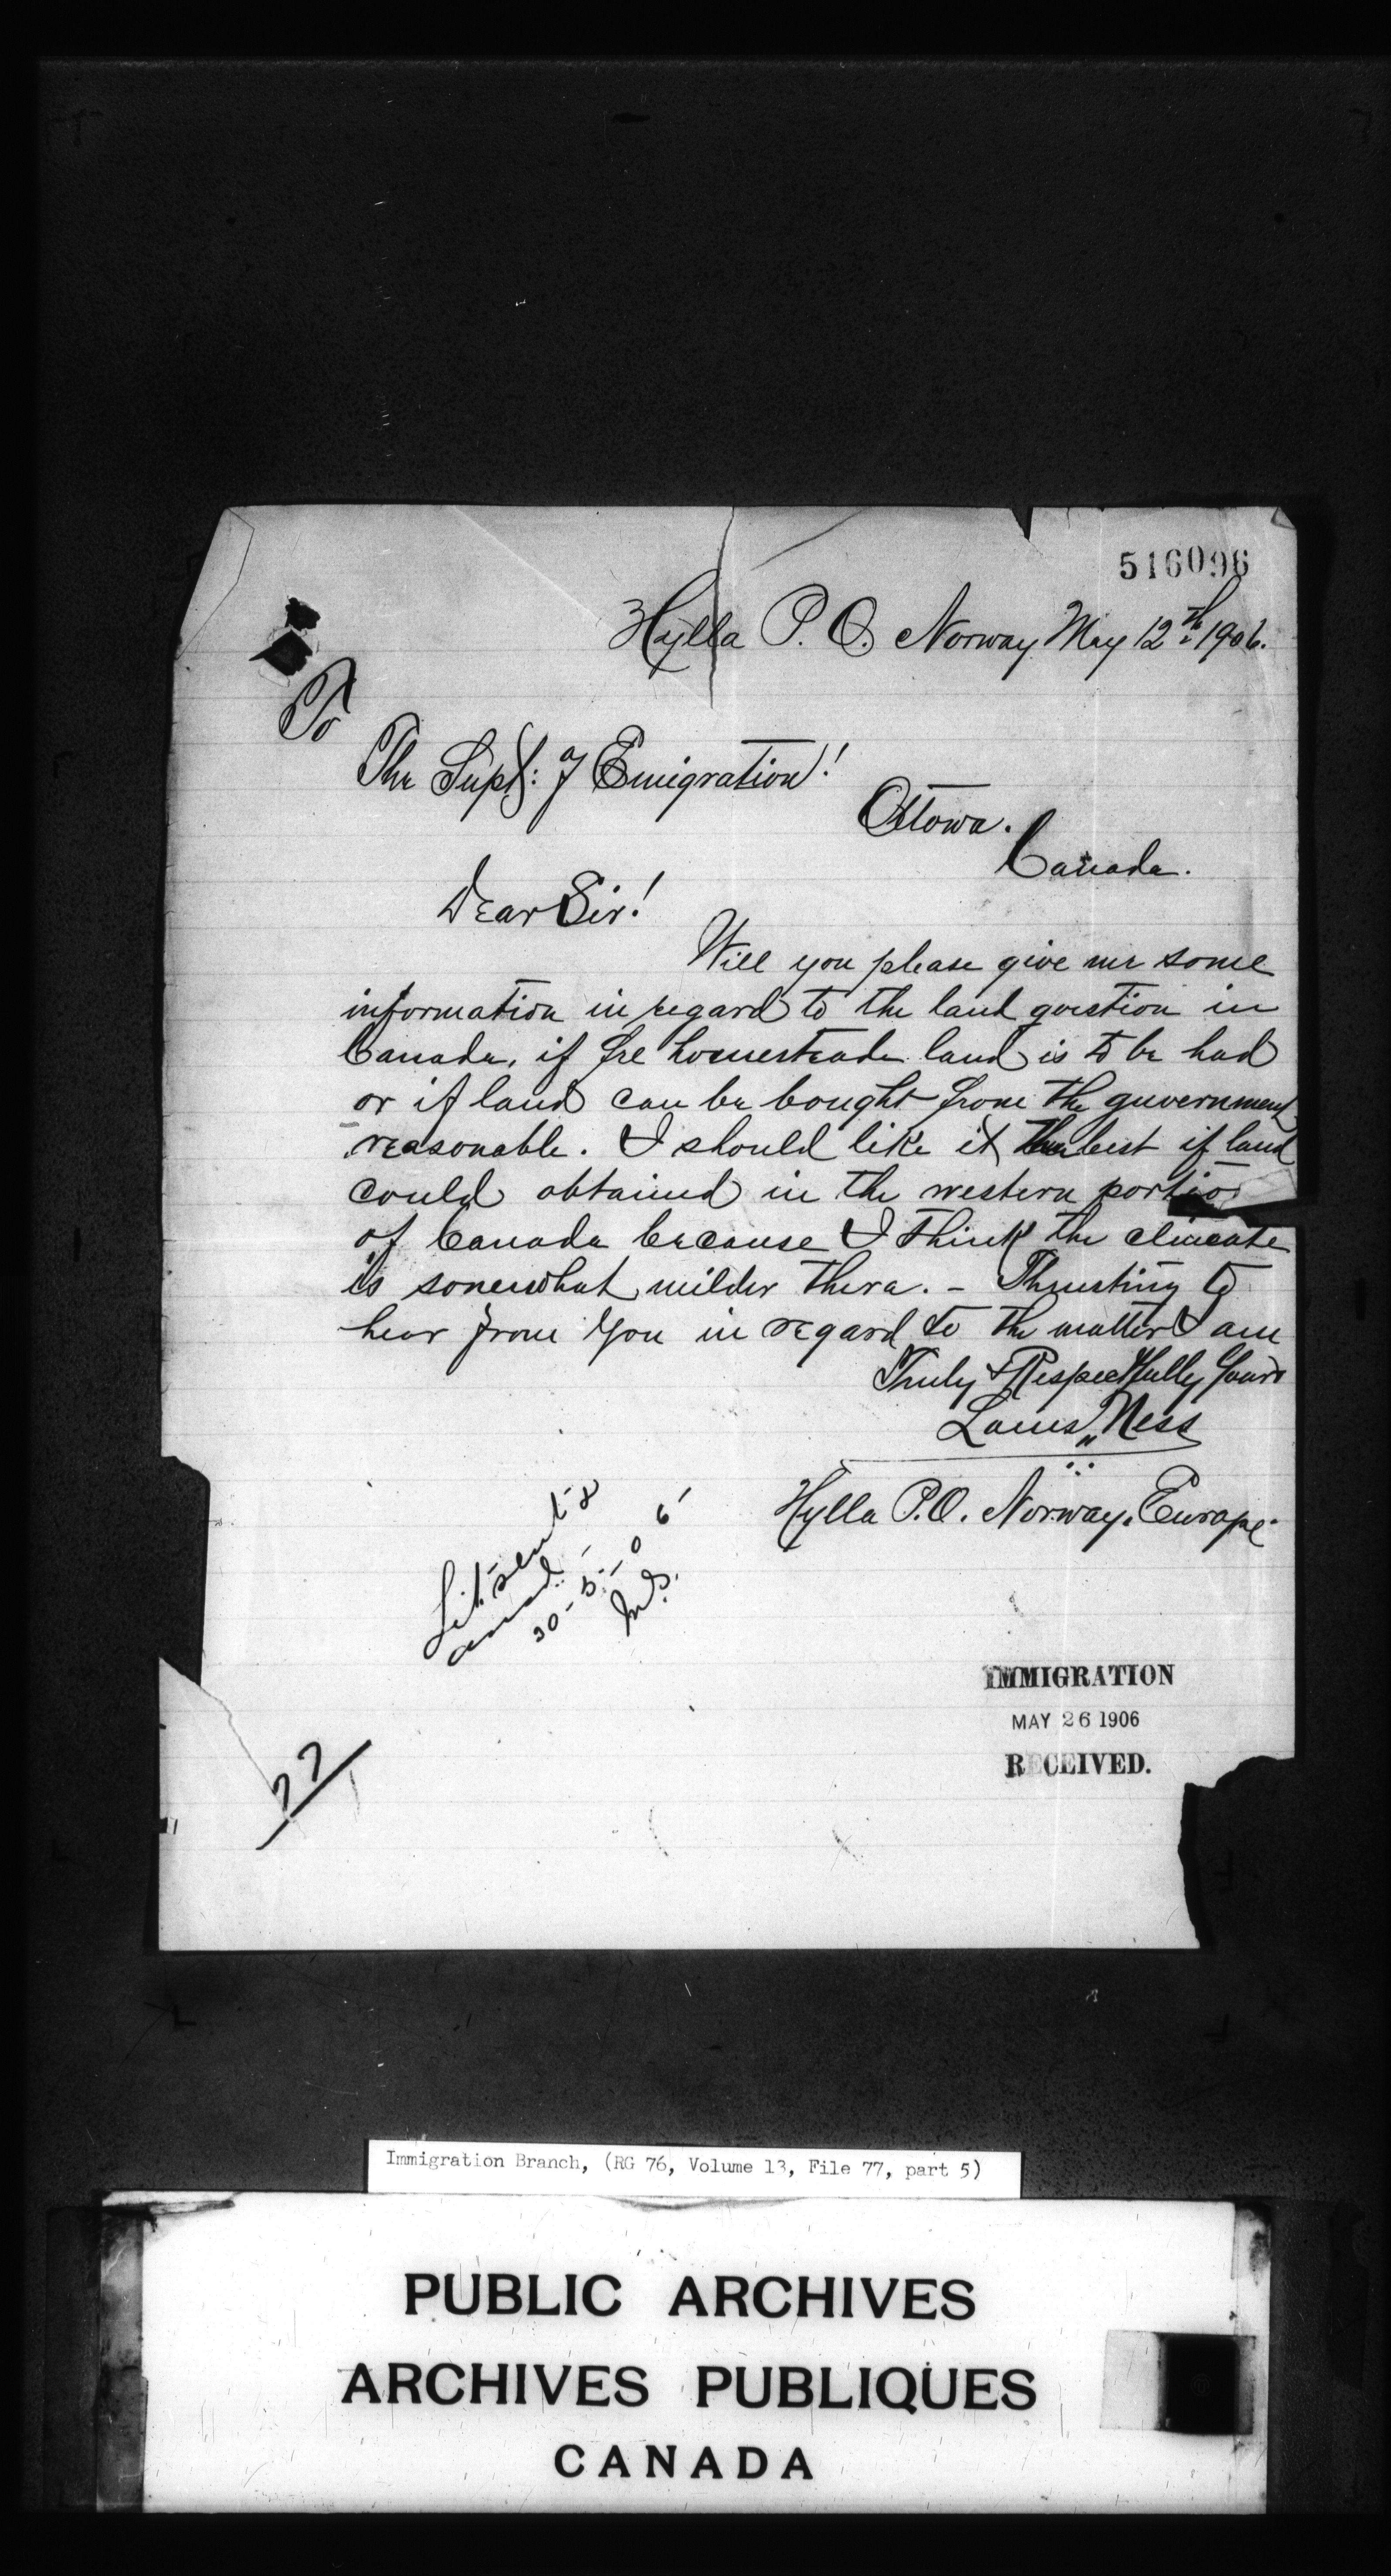 516096
Hylla P. O. Norway May 12th 1906.
To
The Supt: of Emigration!
Ottowa.
Canada.
Dear Sir!
Will you please give me some
information in regard to the land qvestion in
Canada, if fre homesteade land is to be had
or if land can be bought from the guvernment
reasonable. I should like it the best if land
could obtained in the western portio
of Canada because I think the climate
is somewhat milder thera. - Thrusting to
hear from You in regard to the matter I am
Truly & Respectfully Yours
Louis Ness
Hylla P.O. Norway, Europe.
Lit. sent &
30-5-06
IMMIGRATION
MAY 26 1906
RECEIVED.
77
Immigration Branch, (RG 76, Volume 13, File 77, part 5)
PUBLIC ARCHIVES
ARCHIVES PUBLIQUES
CANADA